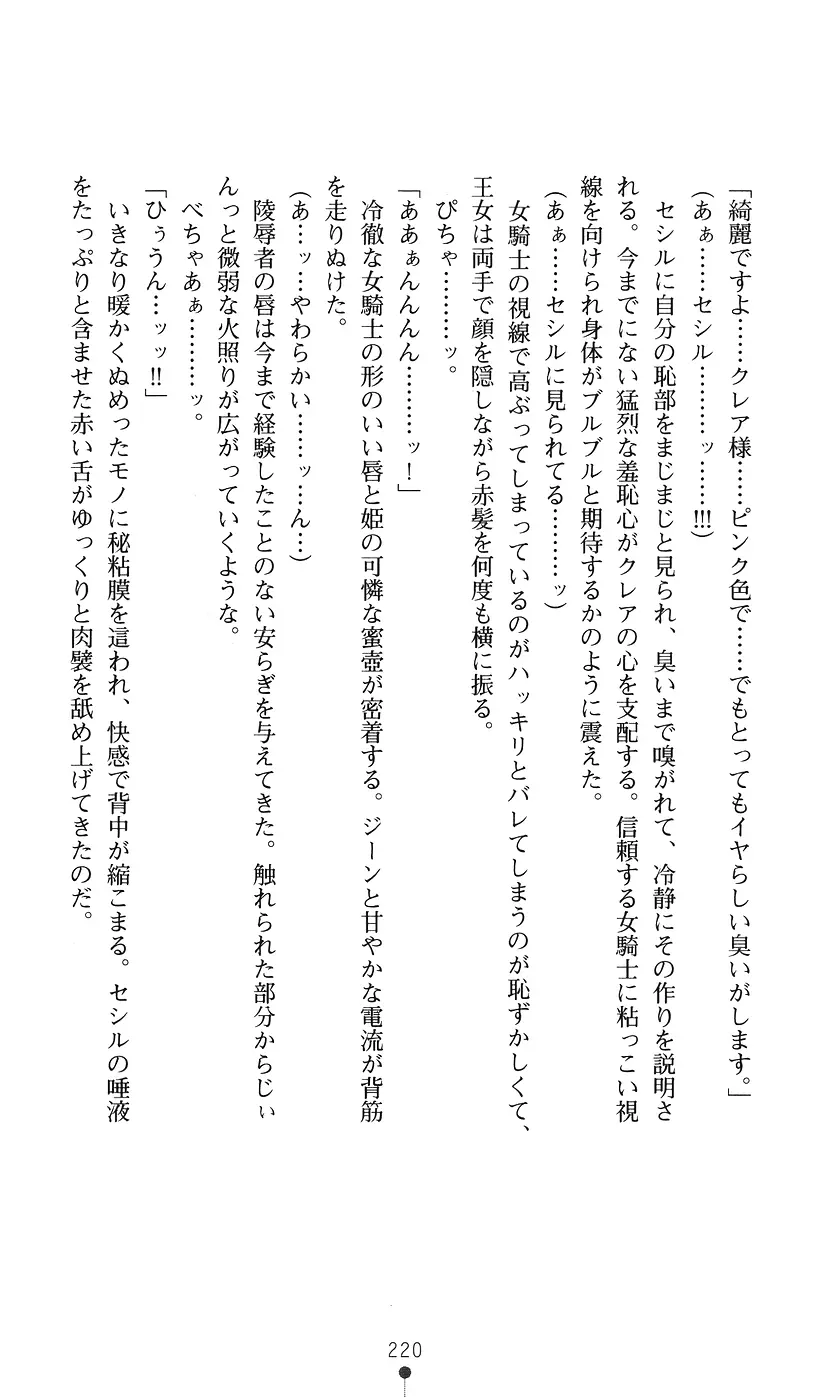 「綺麗ですよ……クレア様……ピンク色で……でもとってもイヤらしい臭いがします。」
(あぁ……セシル………ッ……!!!)
　セシルに自分の恥部をまじまじと見られ、臭いまで嗅がれて、冷静にその作りを説明さ
れる。今までにない猛烈な羞恥心がクレアの心を支配する。信頼する女騎士に粘っこい視
線を向けられ身体がブルブルと期待するかのように震えた。
(あぁ……セシルに見られてる………ッ)
　女騎士の視線で高ぶってしまっているのがハッキリとバレてしまうのが恥ずかしくて、
王女は両手で顔を隠しながら赤髪を何度も横に振る。
　ぴちゃ………ッ。
「ああぁんんん………ッ！」
　冷徹な女騎士の形のいい唇と姫の可憐な蜜壺が密着する。ジーンと甘やかな電流が背筋
を走りぬけた。
(あ…ッ…やわらかい……ッ…ん…)
　陵辱者の唇は今まで経験したことのない安らぎを与えてきた。触れられた部分からじぃ
んっと微弱な火照りが広がっていくような。
　べちゃあぁ………ッ。
「ひぅうん…ッッ!!」
　いきなり暖かくぬめったモノに秘粘膜を這われ、快感で背中が縮こまる。セシルの唾液
をたっぷりと含ませた赤い舌がゆっくりと肉襞を舐め上げてきたのだ。
220